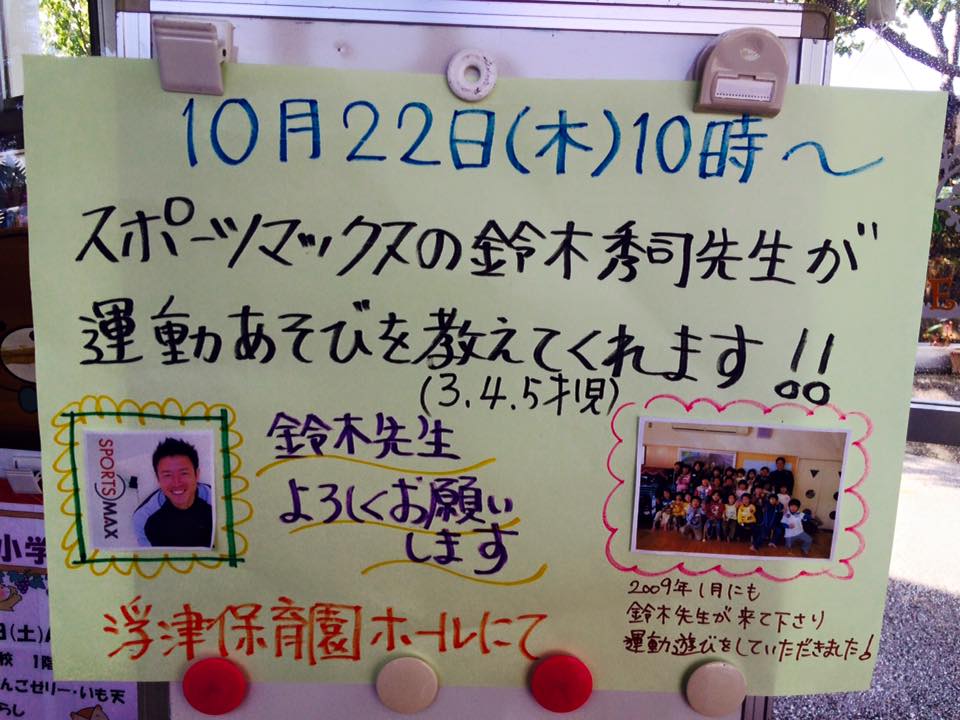 10月22日(木)10時〜
スポーツマックスの鈴木秀司先生が
運動あそびを教えてくれます!!
(3.4.5才児)
SPORTS MAX
鈴木先生
よろしくお願い
します
2009年1月にも
鈴木先生が来て下さり
運動遊びをしていただきました♪
浮津保育園ホールにて
小学
(土)
校 1階
んごゼリー・いも天
らし